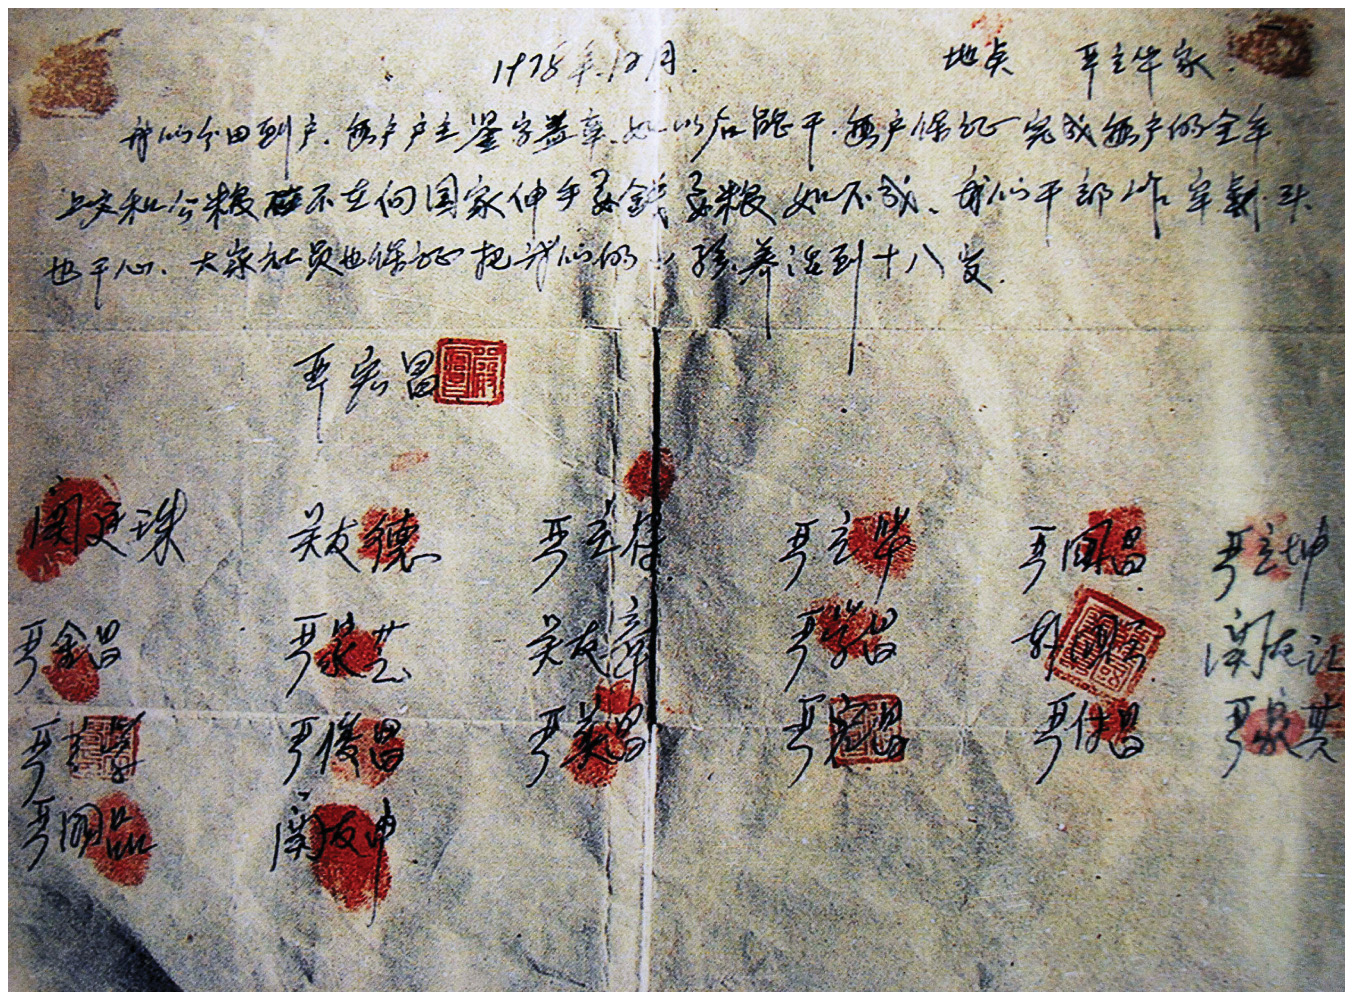 1978年12月. 地点 严立华家.
我们分田到户.每户户主鉴字盖章.如以后能干.每户保证完成每户的全年
上交和公粮不在向国家伸手要钱要粮如不成.我们干部作牢剎头
也干心.大家社员也保证把我们的小孩养活到十八岁.
严宏昌
关廷珠 关友德 严立符 严立华 严国昌 严立坤
严金昌 严家芝 关友章 严学昌 韩国云 关友江
严立学 严俊昌 严美昌 严宏昌 严付昌 严家其
严国品 关友申